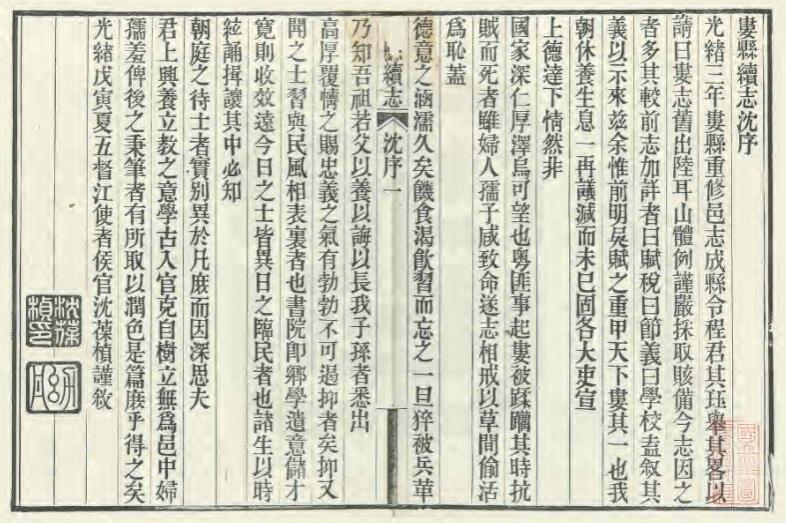 婁縣續志沈序
光緒三年婁縣重修邑志成縣令程君其珏舉其畧以
請曰婁志舊出陸耳山體例謹嚴採取賅備今志因之
者多其較前志加詳者曰賦稅曰節義曰學校盍叙其
義以示來茲余惟前明吳賦之重甲天下婁其一也我
朝休養生息一再議減而未已固各大吏宣
上德達下情然非
國家深仁厚澤烏可望也粵匪事起婁被蹂躪其時抗
賊而死者雖婦人孺子咸致命遂志相戒以草間偷活
爲恥蓋
德意之涵濡久矣饑食渴飲習而忘之一旦猝被兵革
續志
沈序
一
乃知吾祖若父以養以誨以長我子孫者悉出
高厚覆幬之賜忠義之氣有勃勃不可遏抑者矣抑又
聞之士習與民風相表裏者也書院卽鄉學遺意儲才
寬則收效遠今日之士皆異日之臨民者也諸生以時
絃誦揖讓其中必知
朝庭之待士者實別異於凡庶而因深思夫
君上興養立教之意學古入官克自樹立無爲邑中婦
孺羞俾後之秉筆者有所取以潤色是篇庶乎得之矣
光緒戊寅夏五督江使者侯官沈葆楨謹敘
沈葆
楨印
幼丹